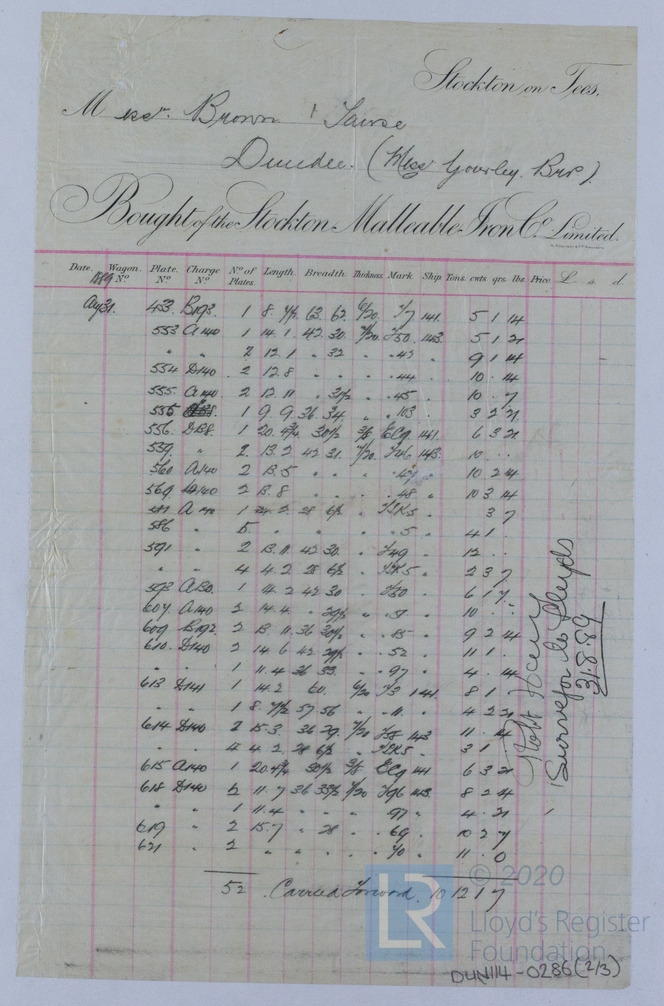 Stockton on Tees.
Messrs. Brown & Tawse
Dundee. (Messrs Gourley Bros).
Bought of the Stockton Malleable Iron Co. Limited.
Date. Wagon No Plate. No Charge No No of Plates. Length. Breadth. Thickness Mark. Ship Tons. cwts. qrs. lbs. Price £ s d.
1889
Aug 31. 433. B193. 1 8. 63. 62. 6/20. 141. 5 1 14
553 A140 1 14.1. 42 30. 7/20. 143. 5 1 21
" " 2 12.1 " 32 " 43 " 9 1 14
554 D140. 2 12.8 " " " 44 " 10 . 14
555 A140 2 12.11 " " 45 " 10 . 7
555 1 9.9 36 34 " 103 " 3 2 21
556. D138. 1 20. 3/8 EC9 141. 6 3 21
559. " 2 13.2 42 31. 7/20. 143. 10 . .
560 A140 2 13.5 " " " " 10 2 14
569 D140 2 13.8 " " " 48 " 10 3 14
A140 1 24.2. 28 3 7
586 " 5 " " " 5 " 4 1 .
591 " 2 13.11. 42 30. " 12 . .
" " 4 4.2 28 " 2 3 7
593 A130. 1 14.2 42 30 " 6 1 7
607 A140 2 14.4 " " 51 " 10 . .
609 B192. 2 13.11. 36 " 85 " 9 2 14
610. D140 2 14.6 42 " 52 " 11 1 .
" " 1 11.4 36 33. " 97 " 4 . 14
613 D141 1 14.2 60. 6/20 141. 8 1
" " 1 8. 57 56 " 11. " 4 2 21
614 D140 2 15.3. 36 29. 7/20 143 11 . 14
" " 4 4.2. 28 " 3 1 .
615 A140 1 20. 3/8 EC9 141 6 3 21
618 D140 11.7 36 7/20 143. 8 2 4
" " 1 11.4 " " " 97 " 4 . 21
619 " 2 15.7 " 28 " " 69 " 10 2 7
621 " 2 " " " " 70 " 11 . 0
52 Carried Forward. 10 12 1 7
Robt
Surveyor to Lloyds
31.8.89
© 2020
LR
Lloyd's Register
Foundation
DUN114-0286 (2/3)